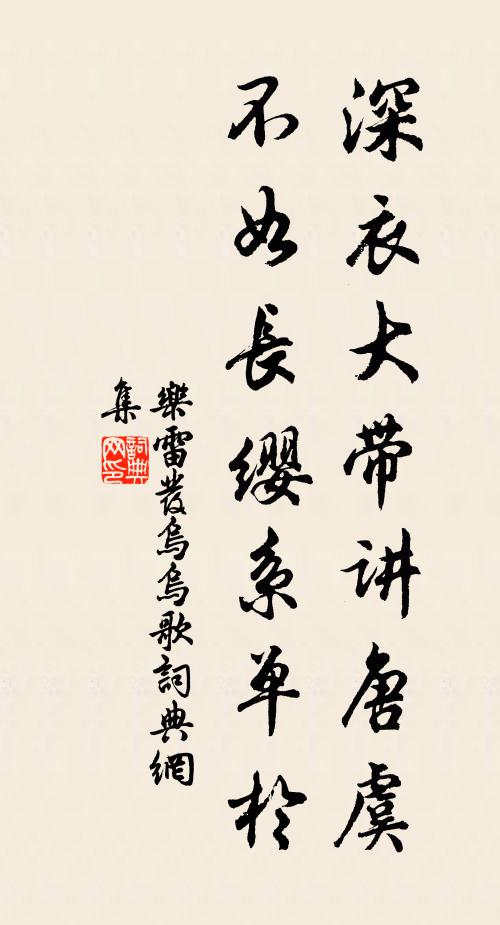 深衣大带讲唐虞
不如长缨系单於
樂雷發烏烏歌詞典網
集
詞典網印